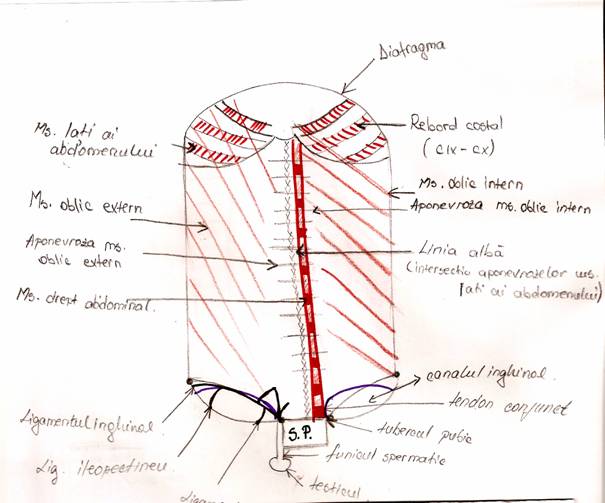 Diafragma
Ms. lati ai
abdomenului
Rebord costal
(CIX - CX)
Ms. oblic intern
Aponevroza ms. oblic intern
Ms. oblic extern
Aponevroza ms.
oblic extern
Linia albă
(intersectio aponevrozelor ms.
lati ai abdomenului)
Ms. drept abdominal.
canalul inghinal.
tendon conjunct
Ligamentul inghinal
tubercul pubic
S.P.
Lig. ileopectineu
funicul spermatic
testicul